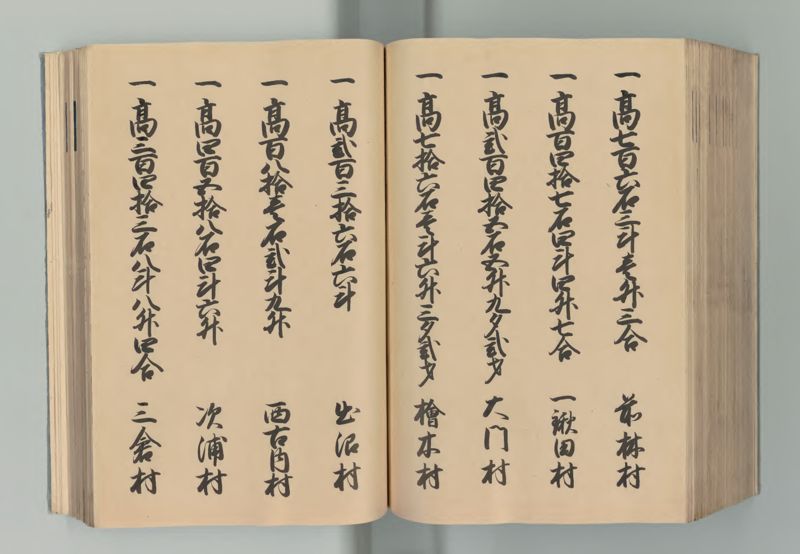 一 高七百六石三斗壱升三合 前林村
一 高百四拾七石四斗四升七合 一鍬田村
一 高弐百四拾五石五升九夕弐才 大門村
一 高七拾六石壱斗六升三夕弐才 檜木村
一 高弐百三拾六石六斗 出沼村
一 高百八拾壱石弐斗九升 西古内村
一 高四百五拾八石四斗六升 次浦村
一 高三百四拾三石八斗八升四合 三倉村